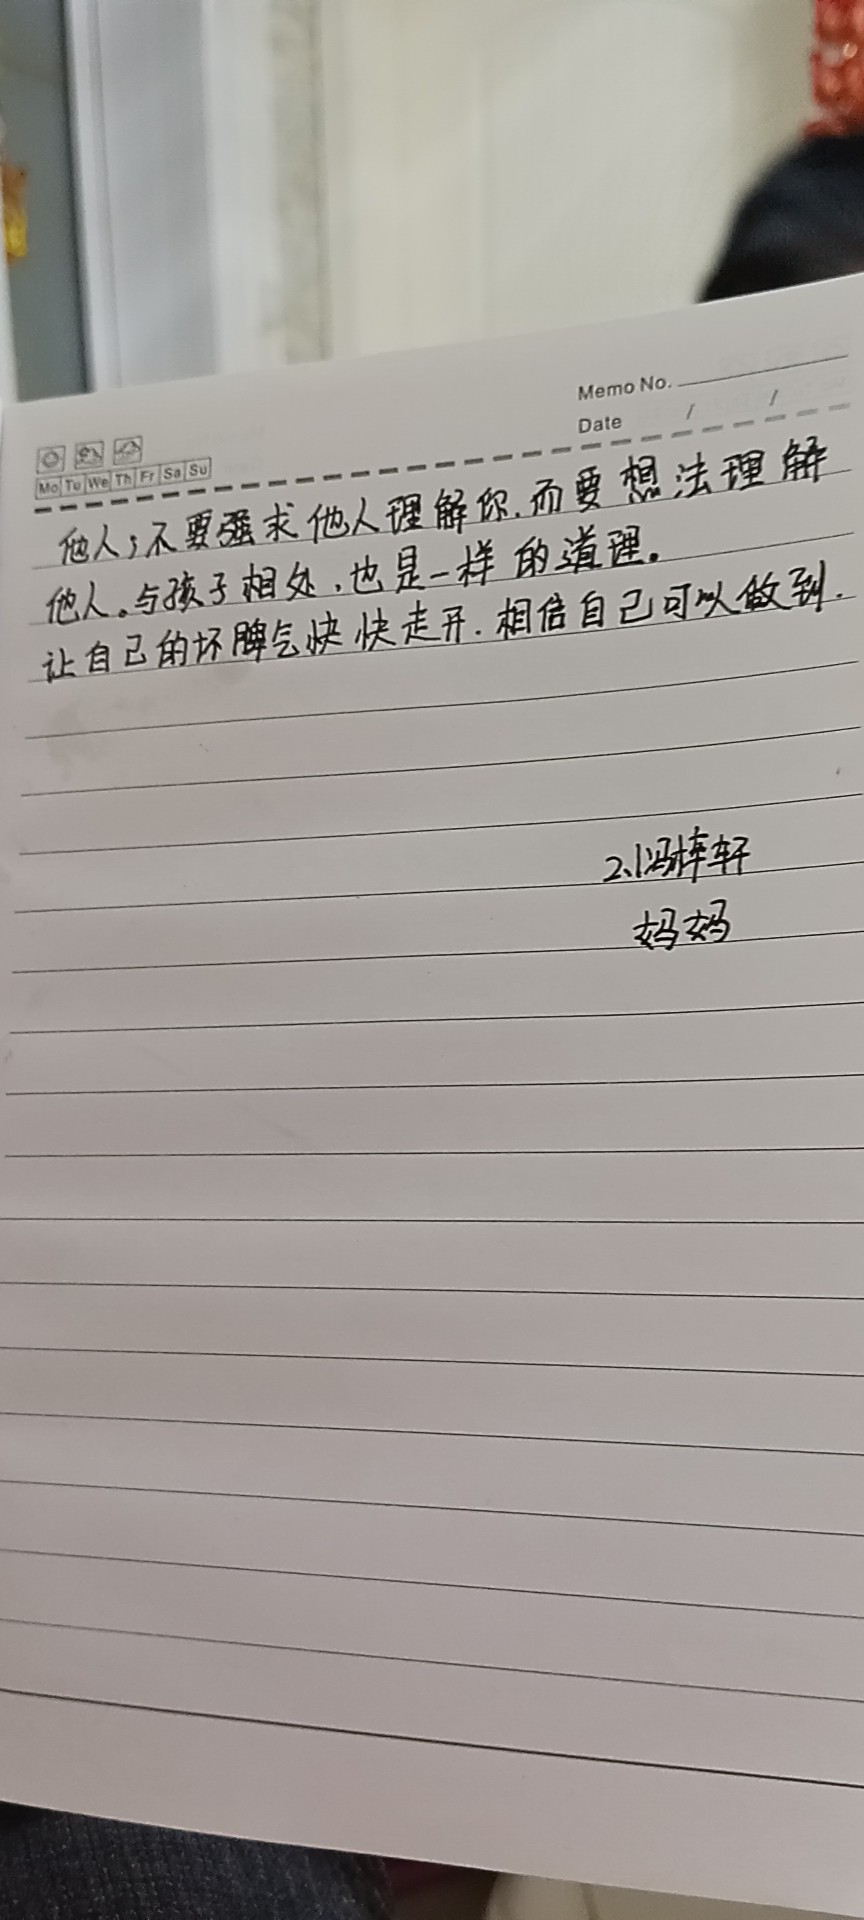 Memo No.
Date / /
Mo Tu We Th Fr Sa Su
他人；不要强求他人理解你.而要想法理解
他人。与孩子相处.也是一样的道理。
让自己的坏脾气快快走开.相信自己可以做到.
2.1冯梓轩
妈妈